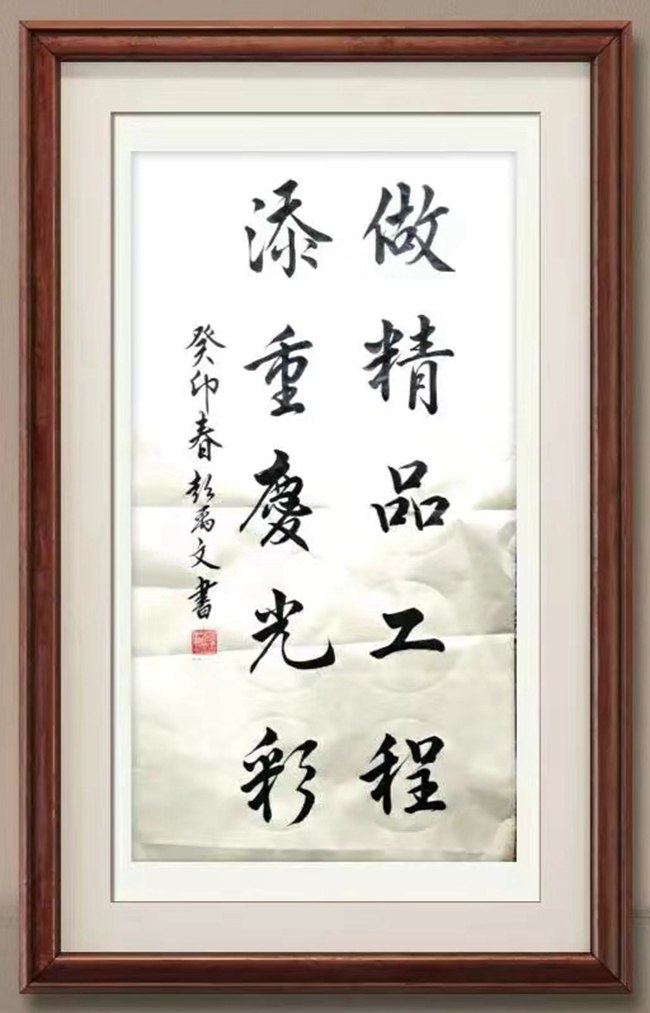 做精品工程
添重慶光彩
癸卯春彭禹文書